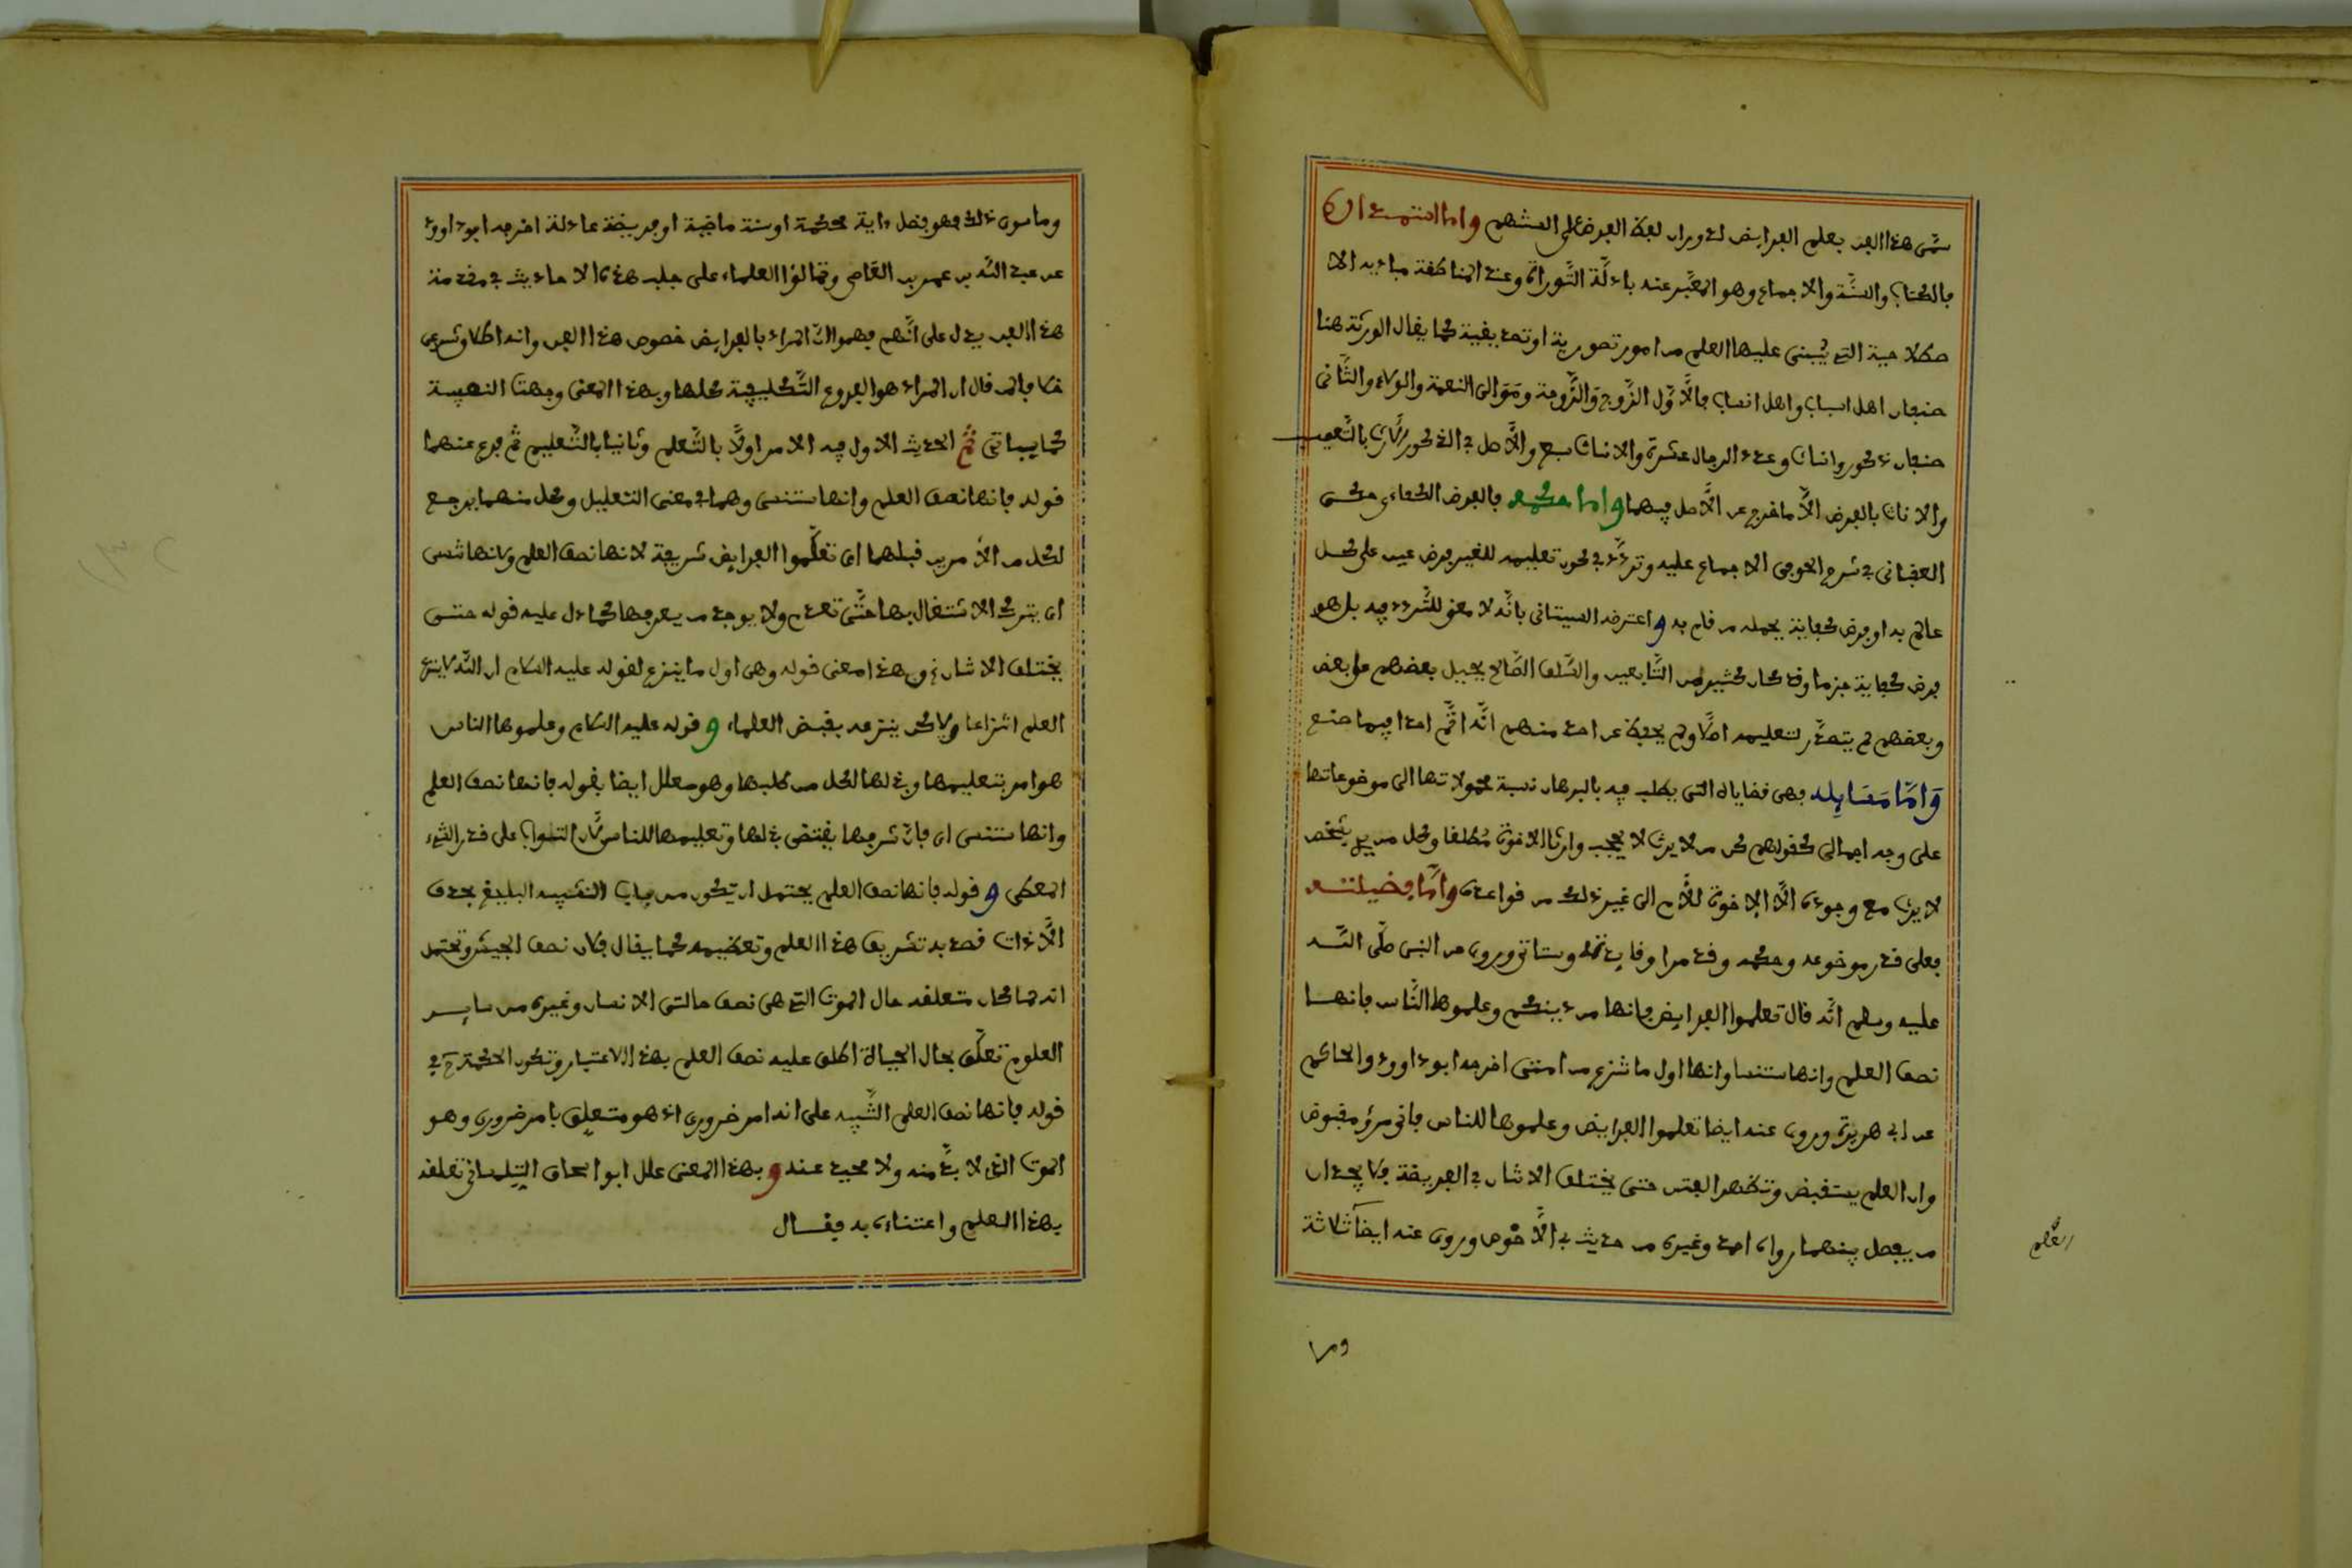 سمي هذا الفن بعلم الفرايض لدوران لفظ الفرض على السنتهم واما استمداده
بالكتاب والسنة والاجماع وهو المعبر عنه بادلة التوراة وعند المناطقة مباديه الا
صطلاحية التي يبنى عليها العلم من امور تصورية او تصديقية كما يقال الورثة هنا
صنفان اهل اسباب واهل انساب فالاول الزوج والزوجة ومولى النعمة والولاء والثاني
صنفان ذكور واناث وعدد الرجال عشرة والاناث سبع والاصل في الذكور الارث بالتعصيب
والاناث بالفرض الا ما خرج عن الاصل فيهما واما حكمه فالفرض الكفاءي حكى
العقباني في شرح الحوفي الاجماع عليه وتردد في كون تعليمه للغير فرض عين على كل
عالم به او فرض كفاية يحمله من قام به واعترضه السيتاني بانه لا معنى للتردد فيه بل هو
فرض كفاية جزما وقد كان كثير من التابعين والسلف الصالح يحيل بعضهم على بعض
وبعضهم لم يتصد لتعليمه اصلا ولم يحفظ عن احد منهم انه اثم احدا فيما صنع
واما مسايله فهي قضاياه التي يطلب فيه بالبرهان نسبة محمولاتها الى موضوعاتها
على وجه اجمالي كقولهم كل من لا يرث لا يحجب وارثا الا خوة مطلقا وكل من يدلي بشخص
لا يرث مع وجوده الا الاخوة للام الى غير ذلك من قواعده واما فضيلته
فعلى قدر موضوعه وحكمه وقد مرا وفايدته وستاتي وروي عن النبي صلى الله
عليه وسلم انه قال تعلموا الفرايض فانها من دينكم وعلموها الناس فانها
نصف العلم وانها ستنسا وانها اول ما تنزع من امتي اخرجه ابو داوود والحاكم
عن ابي هريرة وروي عنه ايضا تعلموا الفرايض وعلموها للناس فاني مرؤ مقبوض
وان العلم سيقبض وتظهر الفتن حتى يختلف الاثنان في الفريضة فلا يجدان
من يفصل بينهما رواه احمد وغيره من حديث ابي الاحوص وروي عنه ايضا ثلاثة
العلم
وما
وما سوى ذلك فهو فضل داية محكمة او سنة ماضية او فريضة عادلة اخرجه ابو داوود
عن عبد الله بن عمر بن العاصي وتمالؤا العلماء على جلب هذه الاحاديث في مقدمة
هذا الفن يدل على انهم فهموا ان المراد بالفرايض خصوص هذا الفن وانه اطلاق شرعي
خلافا لمن قال ان المراد هو الفروع التكليفية كلها وبهذا المعنى وجهتا النفيسة
كما سياتي ثم الحديث الاول فيه الامر اولا بالتعلم وثانيا بالتعليم ثم فرع عنهما
قوله فانها نصف العلم وانها ستنسى وهما في معنى التعليل وكل منهما يرجع
لكل من الامرين قبلهما اى تعلموا الفرايض شريفة لانها نصف العلم ولانها تنسى
اى يترك الاشتغال بها حتى تعدم ولا يوجد من يعرفها كما دل عليه قوله حتى
يختلف الاثنان وهذا معنى قوله وهي اول ما ينزع لقوله عليه السلام ان الله لا ينزع
العلم انتزاعا ولاكن ينزعه بقبض العلماء وقوله عليه السلام وعلموها الناس
هو امر بتعليمها وبذلها لكل من طلبها وهو معلل ايضا بقوله فانها نصف العلم
وانها ستنسى اى فان شرفها يقتضي بذلها وتعليمها للناس لان الثواب على قدر الشيء
المعطى وقوله فانها نصف العلم يحتمل ان يكون من باب التشبيه البليغ بحذف
الاداة قصد به تشريف هذا العلم وتعظيمه كما يقال فلان نصف الجيش ويحتمل
انه لما كان متعلقه حال الموت التي هي نصف حالتي الانسان وغيره من ساير
العلوم تعلق بحال الحياة اطلق عليه نصف العلم بهذا الاعتبار وتكون الحكمة في
قوله فانها نصف العلم التنبيه على انه امر ضروري اذ هو متعلق بامر ضروري وهو
الموت الذى لا بد منه ولا محيد عنه وبهذا المعنى علل ابو اسحاق التلمساني تعلقه
بهذا العلم واعتناءه به فقال